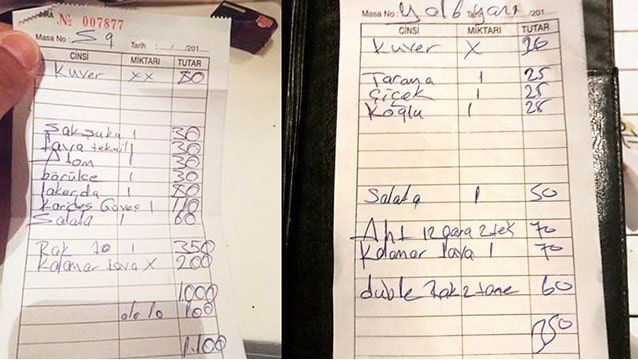 № 007877
Masa No: S 9 Tarih: / /201
CİNSİ MİKTARI TUTAR
Kuver xx 80
Şakşuka 1 30
Tava tekmil 1 30
Atom 1 30
börülce 1 30
lakerda 1 80
Karides Güveç 1 110
Salata 1 60
Rak 70 1 350
Kalamar tava x 200
1000
%10 100
1.100
Masa No: Yol 6 yarı Tarih: / /201
CİNSİ MİKTARI TUTAR
Kuver x 20
Tarama 1 25
Çiçek 1 25
Köğlu 1 25
Salata 1 50
Aht Izgara 2 tek 70
Kalamar tava 1 70
duble Rak 2 tane 60
350